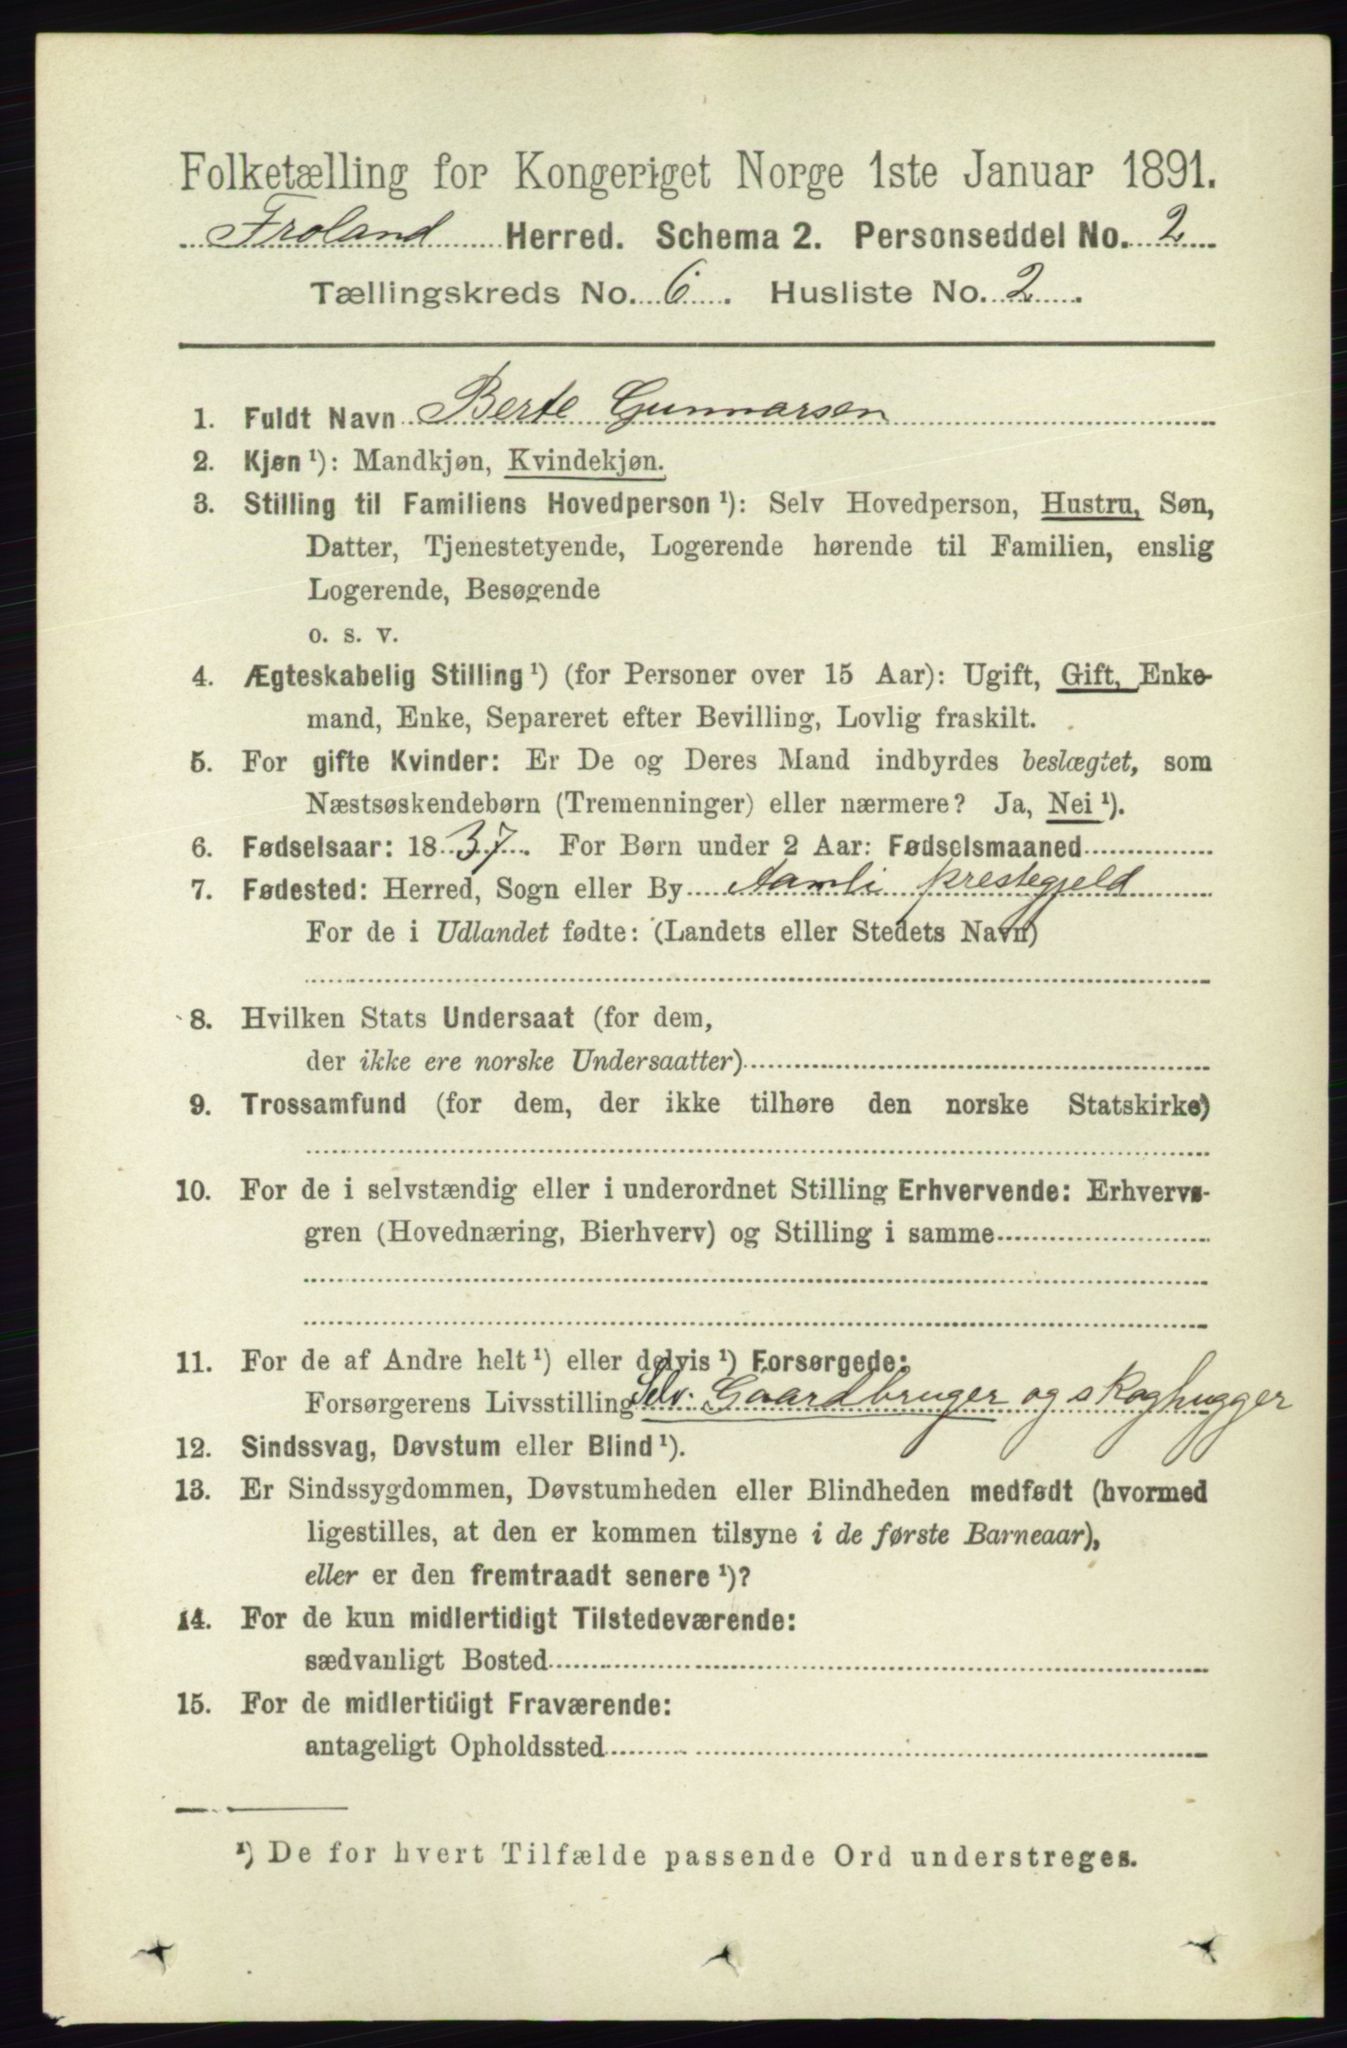 Folketælling for Kongeriget Norge 1ste Januar 1891.
Froland Herred. Schema 2. Personseddel No. 2
Tællingskreds No. 6. Husliste No. 2.
1. Fuldt Navn Berte Gunnarsen
2. Kjøn ¹): Mandkjøn, Kvindekjøn.
3. Stilling til Familiens Hovedperson ¹): Selv Hovedperson, Hustru, Søn,
Datter, Tjenestetyende, Logerende hørende til Familien, enslig
Logerende, Besøgende
o. s. v.
4. Ægteskabelig Stilling ¹) (for Personer over 15 Aar): Ugift, Gift, Enke-
mand, Enke, Separeret efter Bevilling, Lovlig fraskilt.
5. For gifte Kvinder: Er De og Deres Mand indbyrdes beslægtet, som
Næstsøskendebørn (Tremenninger) eller nærmere? Ja, Nei ¹).
6. Fødselsaar: 1837. For Børn under 2 Aar: Fødselsmaaned
7. Fødested: Herred, Sogn eller By Aamli prestegjeld
For de i Udlandet fødte: (Landets eller Stedets Navn)
8. Hvilken Stats Undersaat (for dem,
der ikke ere norske Undersaatter)
9. Trossamfund (for dem, der ikke tilhøre den norske Statskirke)
10. For de i selvstændig eller i underordnet Stilling Erhvervende: Erhvervs-
gren (Hovednæring, Bierhverv) og Stilling i samme
11. For de af Andre helt ¹) eller delvis ¹) Forsørgede:
Forsørgerens Livsstilling Selv. Gaardbruger og skoghugger
12. Sindssvag, Døvstum eller Blind ¹).
13. Er Sindssygdommen, Døvstumheden eller Blindheden medfødt (hvormed
ligestilles, at den er kommen tilsyne i de første Barneaar),
eller er den fremtraadt senere ¹)?
14. For de kun midlertidigt Tilstedeværende:
sædvanligt Bosted
15. For de midlertidigt Fraværende:
antageligt Opholdssted
¹) De for hvert Tilfælde passende Ord understreges.